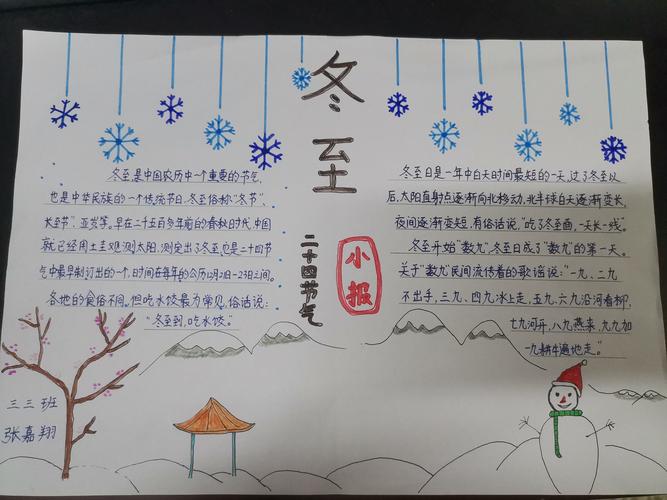 冬至
二十四节气
小报
冬至是中国农历中一个重要的节气,
也是中华民族的一个传统节日,冬至俗称"冬节"、
长至节"、亚岁等。早在二千五百多年前的春秋时代,中国
就已经用土圭观测太阳,测定出了冬至,它是二十四节
气中最早制订出的一个,时间在每年的公历12月21日-23日之间。
各地的食俗不同,但吃水饺最为常见,俗话说:
"冬至到,吃水饺。"
冬至日是一年中白天时间最短的一天,过了冬至以
后,太阳直射点逐渐向北移动,北半球白天逐渐变长,
夜间逐渐变短,有俗话说,"吃了冬至面,一天长一线"。
冬至开始"数九",冬至日成了"数九"的第一天。
关于"数九"民间流传着的歌谣说:"一九、二九
不出手,三九、四九冰上走,五九、六九沿河看柳,
七九河开,八九燕来,九九加
一九耕牛遍地走。"
三三班
张嘉翔